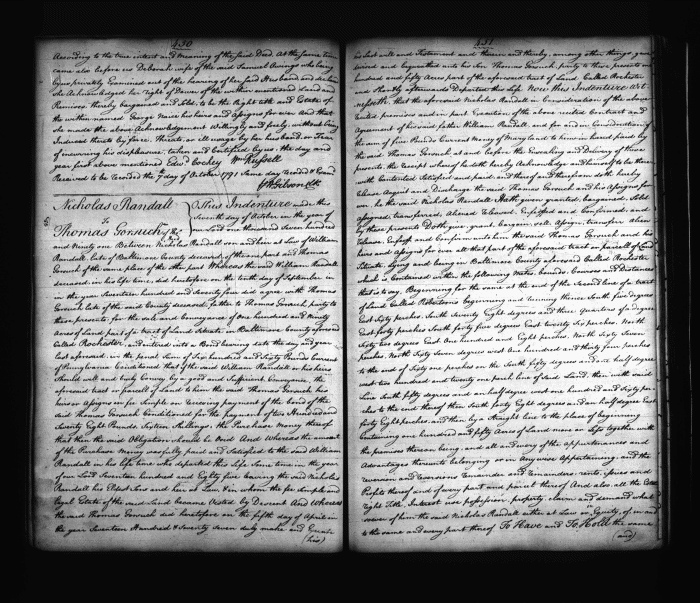 450
According to the true intent and Meaning of the said Deed. At the same time
came also before us Deborah wife of the said Samuel Owings who being
by us privately Examined out of the hearing of her said Husband and declared
she Acknowledged her right of Dower of the within mentioned Land and
Premises thereby bargained and Sold to be the Right title and Estate of
the within named George Naice his heirs and Assigns for ever And that
she made the above Acknowledgement Willingly and freely without being
Induced thereto by fear, Threats, or ill usage by her husband, or Fear
of incurring his displeasure, taken and Certified by us the day and
year first above mentioned Edwd Cockey Wm Russell
Received to be recorded the day of October 1791 Same day recorded & Examd
Wm Gibson Clk
Nicholas Randall
To
Thomas Gorsuch
This Indenture made this
Seventh day of October in the year of
our Lord one thousand Seven hundred
and Ninety one Between Nicholas Randall son and heir at Law of William
Randall late of Baltimore County deceased of the one part and Thomas
Gorsuch of the same place of the other part Whereas the said William Randall
deceased, in his life time, did heretofore on the tenth day of September in
in the year Seventeen hundred and Seventy four did agree with Thomas
Gorsuch late of the said County deceased, father to Thomas Gorsuch, party to
these presents, for the sale and Conveyance of one hundred and Ninety
Acres of Land part of a tract of Land Situate in Baltimore County aforesaid
Called Rochester, and entered into a Bond bearing date the day and year
last aforesaid, in the penal Sum of Six hundred and Sixty Pounds Current
of Pensylvania Conditioned that if the said William Randall or his heirs
Should well and truly Convey, by a good and Sufficient Conveyance, the
aforesaid tract or parcell of Land to him the said Thomas Gorsuch his
heirs or Assigns in fee Simple on receiving payment of the bond of the
said Thomas Gorsuch Conditioned for the payment of two Hundred and
Seventy Eight Pounds, Sixteen Shillings, the Purchase Money thereof
that then the said Obligation should be Void And Whereas the amount
of the Purchase Money was fully paid and Satisfied to the said William
Randall in his life time who departed this Life Some time in the year
of our Lord Seventeen hundred and Eighty five leaving the said Nicholas
Randall his Eldest Son and heir at Law, & in whom the fee Simple and
legal Estate of the said Land became Vested by Descent And Whereas
the said Thomas Gorsuch did heretofore on the fifth day of April in
the year Seventeen Hundred & Seventy Seven duly make and Execute
(his)
451
his Last will and Testament and therein and thereby, among other things gave
devised and bequeathed unto his Son Thomas Gorsuch party to these presents one
hundred and fifty Acres part of the aforesaid tract of Land Called Rochester
and Shortly afterwards Departed this Life Now this Indenture Wit-
nesseth that the aforesaid Nicholas Randall in Consideration of the above
recited premises and in part Execution of the above recited Contract and
Agreement of his said father William Randall, and for and in Consideration of
the sum of five Pounds Current Money of Maryland to him in hand paid by
the said Thomas Gorsuch at and before the Ensealing and Delivery of these
presents the receipt whereof he doth hereby Acknowledge and himself to be there-
with Contented Satisfied and paid, and thereof and therefrom doth hereby
Release Acquit and Discharge the said Thomas Gorsuch and his Assigns for
ever he the said Nicholas Randall Hath given granted, bargained, Sold,
Assigned, transferred, Aliened Released, Enfeoffed and Confirmed, and
by these presents Doth give, grant, bargain, sell, Assign, transfer alien
release, Enfeoff and Confirm unto him the said Thomas Gorsuch and his
heirs and Assigns for ever all that part of the aforesaid tract or parcell of Land
Situate lying and being in Baltimore County aforesaid Called Rochester
which is Contained within the following Metes, bounds, Courses and Distances
that is to say, Beginning for the same at the end of the Second line of a tract
of Land Called beginning and running thence South five degrees
East Sixty perches, South Seventy Eight degrees and three Quarters of a degree
East forty perches South forty five degrees East twenty Six perches, North
Sixty two degrees East One hundred and Eight perches, North Sixty Seven
perches, North Sixty Seven degrees west One hundred and thirty four perches
to the end of Sixty one perches on the South fifty degrees and a half degree
west two hundred and twenty one perch line of said Land, then with said
Line South fifty degrees and an half degree west one hundred and Sixty per-
ches to the end thereof then South forty Eight degrees and an half degree East
forty Eight perches, and then by a Straight line to the place of beginning
Containing one hundred and fifty Acres of Land more or Less together with
the premises thereon being, and all and every of the appurtenances and
Advantages thereunto belonging or in Any wise Appertaining, and the
reversion and reversions remainder and remainders, rents, Issues and
Profits thereof and of every part and parcel thereof And also, all the Estate
right Title, Interest use possession, property claim and demand whatso-
ever of him the said Nicholas Randall either at Law or Equity, of in and
to the same and every part thereof To Have and To Hold the same
(and)